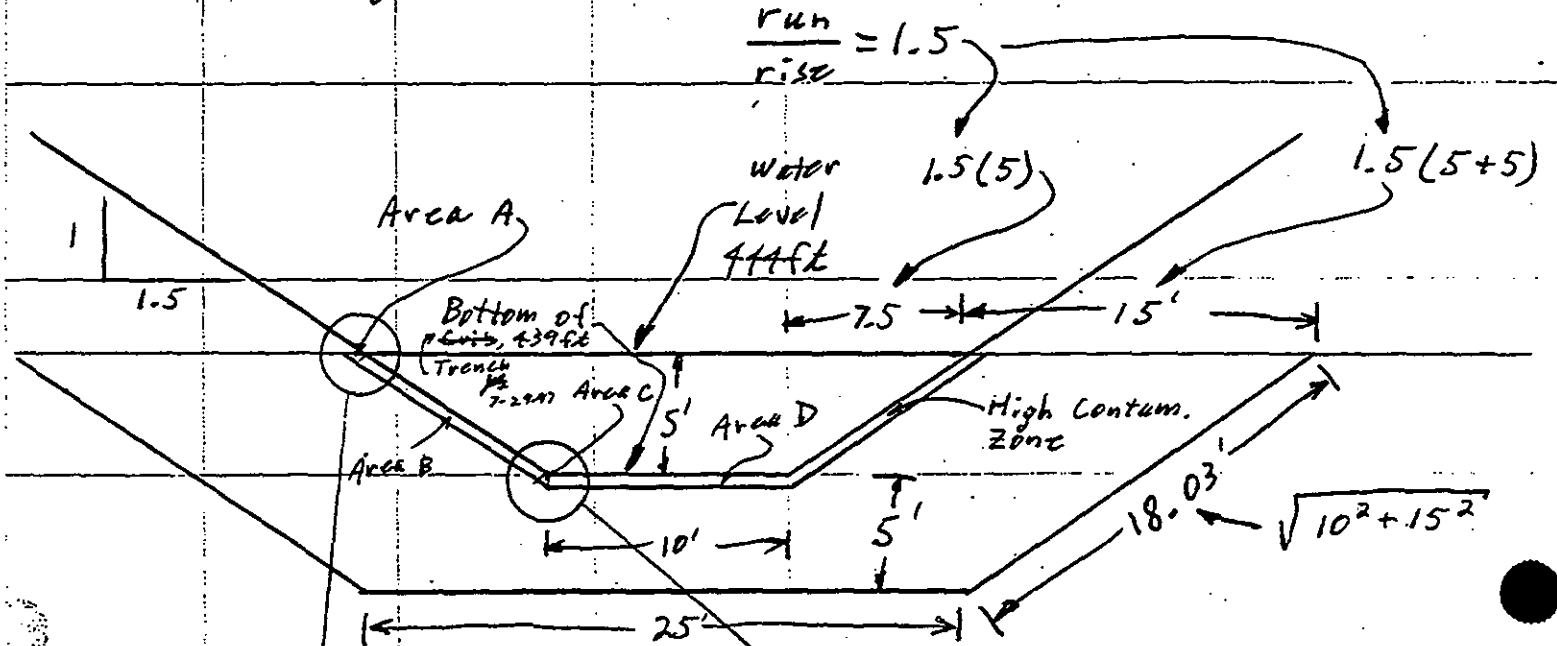 run
rise
= 1.5
1.5(5)
1.5(5+5)
Water
Level
444ft
Area A
1
1.5
Bottom of
439ft
Trench
7-29-97
Area C
7.5
15'
5'
Area D
High Contam.
Zone
Area B
10'
5'
18.03'
√10²+15²
25'